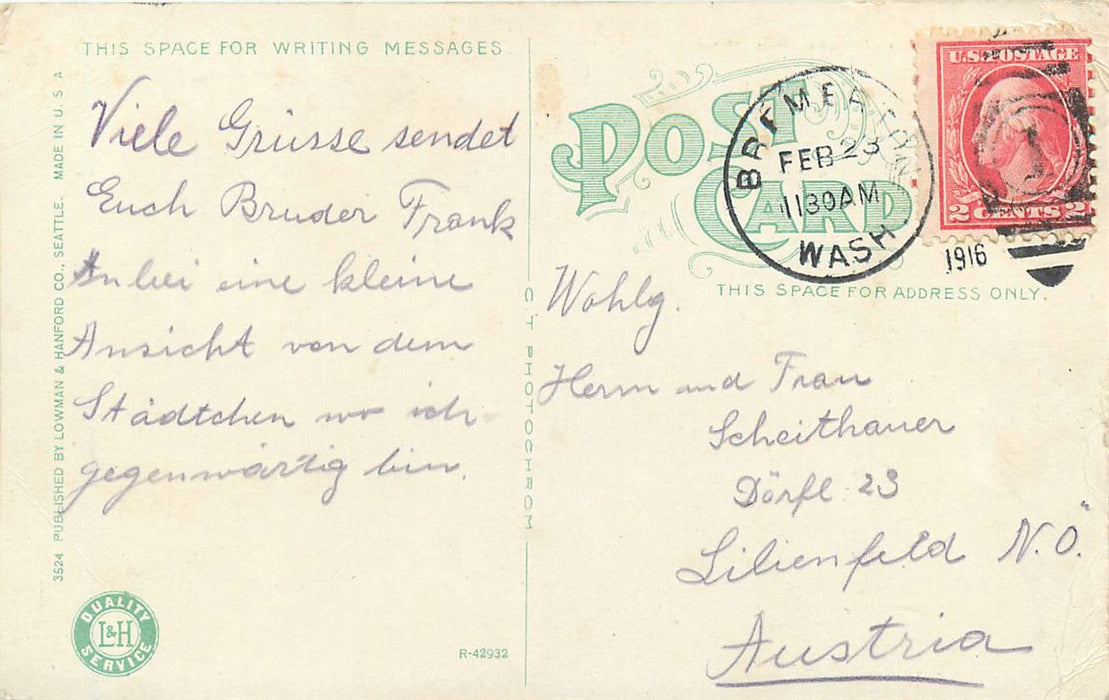 THIS SPACE FOR WRITING MESSAGES
Viele Grüsse sendet
Euch Bruder Frank
Anbei eine kleine
Ansicht von dem
Städtchen wo ich
gegenwärtig bin.
3524 PUBLISHED BY LOWMAN & HANFORD CO., SEATTLE. MADE IN U.S.A
QUALITY
L&H
SERVICE
R-42932
C.T. PHOTOCHROM
POST
CARD
BREMERTON
FEB 23
1130AM
WASH.
1916
U.S. POSTAGE
1
2 CENTS 2
THIS SPACE FOR ADDRESS ONLY.
Wohlg.
Herrn und Frau
Scheithauer
Dörfl 23
Lilienfeld N.Ö.
Austria